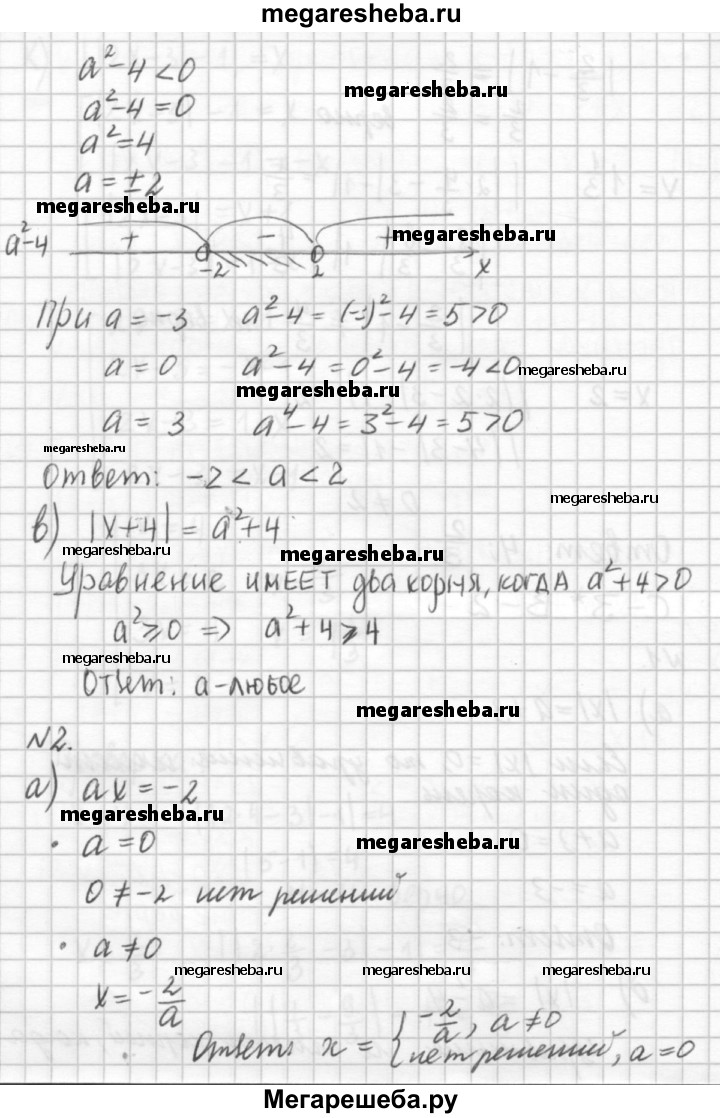 megaresheba.ru
a²-4<0
megaresheba.ru
a²-4=0
a²=4
a=±2
megaresheba.ru
a²-4 + - + megaresheba.ru
-2 2 x
При a=-3 a²-4=(-3)²-4=5>0
a=0 a²-4=0²-4=-4<0 megaresheba.ru
megaresheba.ru
a=3 a⁴-4=3²-4=5>0
megaresheba.ru
Ответ: -2<a<2
megaresheba.ru
в) |x+4|=a²+4
megaresheba.ru megaresheba.ru
Уравнение имеет два корня, когда a²+4>0
a²⩾0 => a²+4⩾4
megaresheba.ru
Ответ: a-любое
megaresheba.ru
№2.
а) ax=-2
megaresheba.ru
· a=0 megaresheba.ru
0≠-2 нет решений
· a≠0
megaresheba.ru megaresheba.ru megaresheba.ru
x=-2/a
Ответ: x={-2/a, a≠0
нет решений, a=0
Мегарешеба.ру